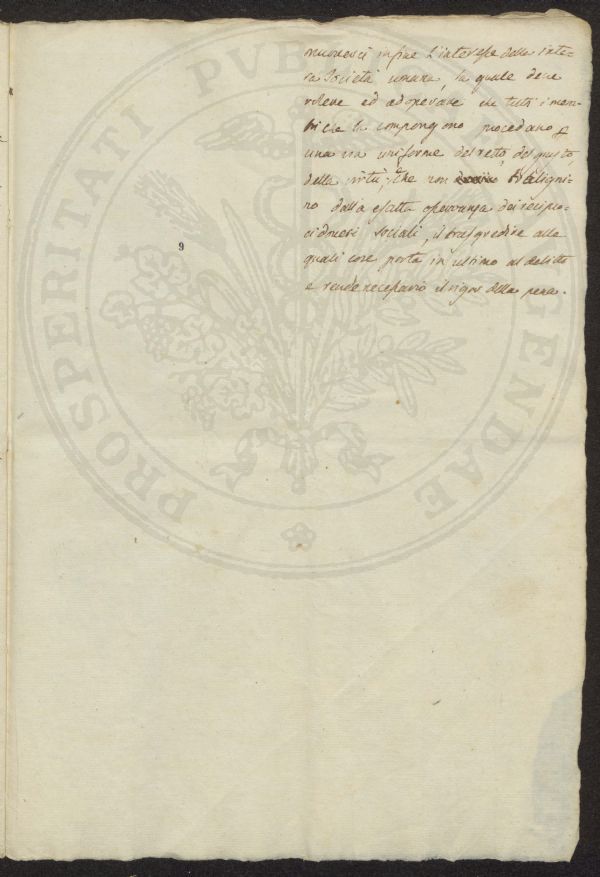 muovesi infine l'interesse della inte-
ra Società umana, la quale deve
volere ed adoperare che tutti i mem-
bri che la compongono procedano p
una via uniforme del retto, del giusto,
della virtù, che non traligni-
no dalla esatta osservanza dei recipro-
ci doveri sociali, il trasgredire alle
quali cose porta in ultimo al delitto
e rende necessario il rigor della pena.
9
PROSPERITATI PUBLICAE AUGENDAE